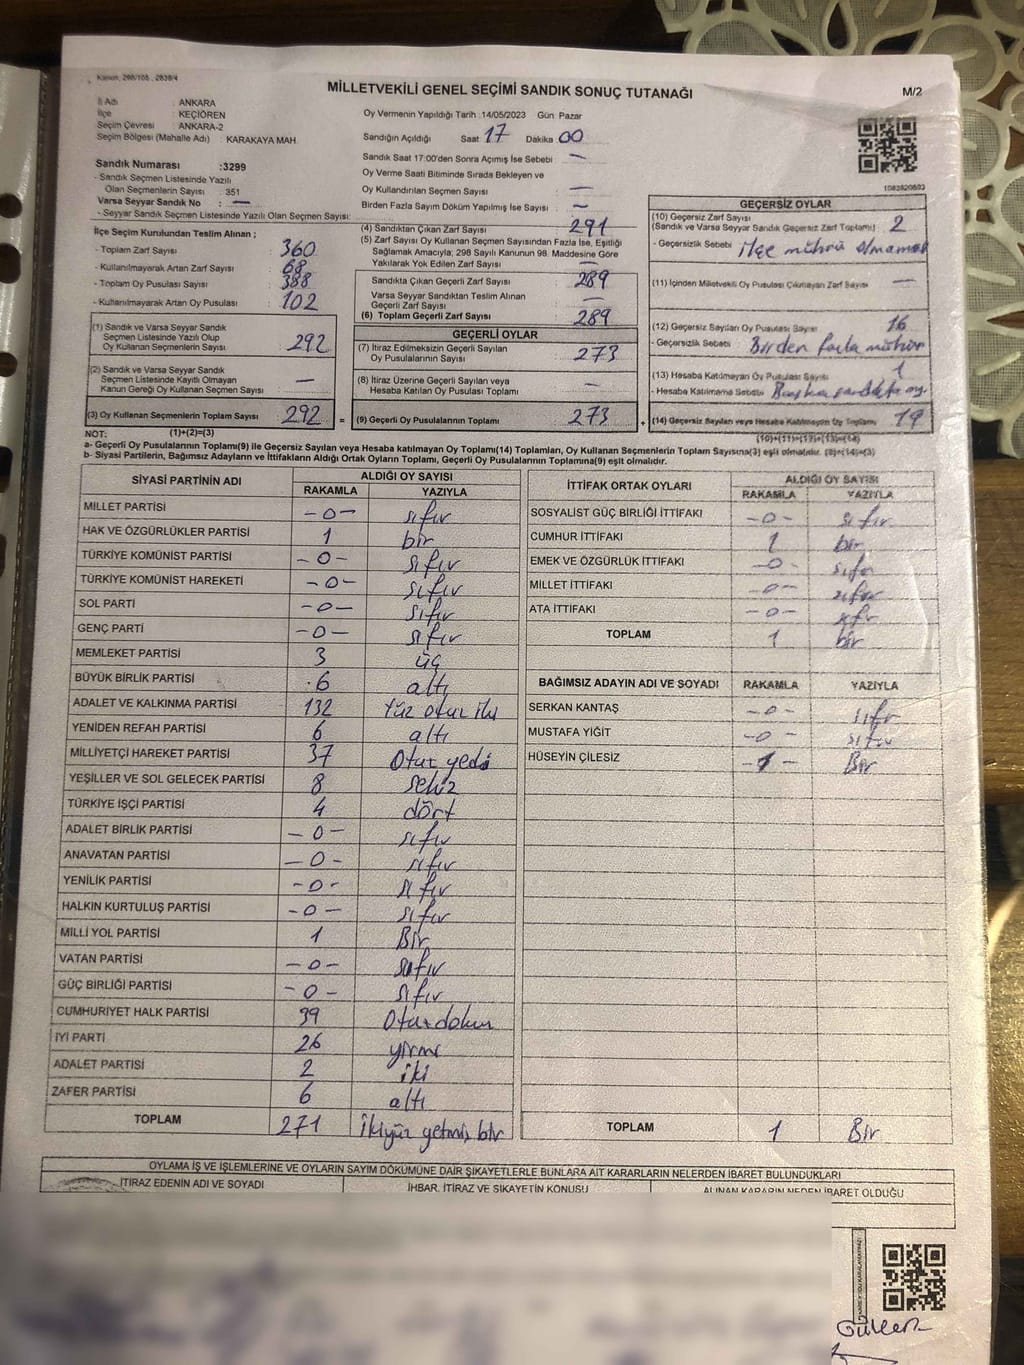 Kanun, 298/105 , 2839/4
MİLLETVEKİLİ GENEL SEÇİMİ SANDIK SONUÇ TUTANAĞI
M/2
İl Adı : ANKARA
İlçe : KEÇİÖREN
Seçim Çevresi : ANKARA-2
Seçim Bölgesi (Mahalle Adı) : KARAKAYA MAH.
Sandık Numarası :3299
- Sandık Seçmen Listesinde Yazılı
Olan Seçmenlerin Sayısı : 351
Varsa Seyyar Sandık No : —
- Seyyar Sandık Seçmen Listesinde Yazılı Olan Seçmen Sayısı:
Oy Vermenin Yapıldığı Tarih :14/05/2023 Gün Pazar
Sandığın Açıldığı Saat 17 Dakika 00
Sandık Saat 17:00'den Sonra Açımış İse Sebebi —
Oy Verme Saati Bitiminde Sırada Bekleyen ve
Oy Kullandırılan Seçmen Sayısı —
Birden Fazla Sayım Döküm Yapılmış İse Sayısı —
1083820803
İlçe Seçim Kurulundan Teslim Alınan ;
- Toplam Zarf Sayısı : 360
- Kullanılmayarak Artan Zarf Sayısı : 68
- Toplam Oy Pusulası : 388
- Kullanılmayarak Artan Oy Pusulası : 102
(1) Sandık ve Varsa Seyyar Sandık
Seçmen Listesinde Yazılı Olup
Oy Kullanan Seçmenlerin Sayısı : 292
(2) Sandık ve Varsa Seyyar Sandık
Seçmen Listesinde Kayıtlı Olmayan
Kanun Gereği Oy Kullanan Seçmen Sayısı : —
(3) Oy Kullanan Seçmenlerin Toplam Sayısı : 292 =
(4) Sandıktan Çıkan Zarf Sayısı : 291
(5) Zarf Sayısı Oy Kullanan Seçmen Sayısından Fazla İse, Eşitliği
Sağlamak Amacıyla; 298 Sayılı Kanunun 98. Maddesine Göre
Yakılarak Yok Edilen Zarf Sayısı : —
Sandıkta Çıkan Geçerli Zarf Sayısı : 289
Varsa Seyyar Sandıktan Teslim Alınan
Geçerli Zarf Sayısı : —
(6) Toplam Geçerli Zarf Sayısı : 289
GEÇERLİ OYLAR
(7) İtiraz Edilmeksizin Geçerli Sayılan
Oy Pusulalarının Sayısı : 273
(8) İtiraz Üzerine Geçerli Sayılan veya
Hesaba Katılan Oy Pusulası Toplamı : —
(9) Geçerli Oy Pusulalarının Toplamı : 273 +
GEÇERSİZ OYLAR
(10) Geçersiz Zarf Sayısı
(Sandık ve Varsa Seyyar Sandık Geçersiz Zarf Toplamı) : 2
- Geçersizlik Sebebi : İlçe mührü olmaması
(11) İçinden Milletvekili Oy Pusulası Çıkmayan Zarf Sayısı : —
(12) Geçersiz Sayılan Oy Pusulası Sayısı : 16
- Geçersizlik Sebebi : Birden fazla mühür
(13) Hesaba Katılmayan Oy Pusulası Sayısı : 1
- Hesaba Katılmama Sebebi : Başka sandıkta oy
(14) Geçersiz Sayılan veya Hesaba Katılmayan Oy Toplamı : 19
NOT: (1)+(2)=(3)
(10)+(11)+(12)+(13)=(14)
a- Geçerli Oy Pusulalarının Toplamı(9) ile Geçersiz Sayılan veya Hesaba katılmayan Oy Toplamı(14) Toplamları, Oy Kullanan Seçmenlerin Toplam Sayısına(3) eşit olmalıdır. (9)+(14)=(3)
b- Siyasi Partilerin, Bağımsız Adayların ve İttifakların Aldığı Ortak Oyların Toplamı, Geçerli Oy Pusulalarının Toplamına(9) eşit olmalıdır.
SİYASİ PARTİNİN ADI ALDIĞI OY SAYISI
RAKAMLA YAZIYLA
MİLLET PARTİSİ -0- sıfır
HAK VE ÖZGÜRLÜKLER PARTİSİ 1 bir
TÜRKİYE KOMÜNİST PARTİSİ -0- sıfır
TÜRKİYE KOMÜNİST HAREKETİ -0- sıfır
SOL PARTİ -0- sıfır
GENÇ PARTİ -0- sıfır
MEMLEKET PARTİSİ 3 üç
BÜYÜK BİRLİK PARTİSİ 6 altı
ADALET VE KALKINMA PARTİSİ 132 Yüz otuz iki
YENİDEN REFAH PARTİSİ 6 altı
MİLLİYETÇİ HAREKET PARTİSİ 37 Otuz yedi
YEŞİLLER VE SOL GELECEK PARTİSİ 8 sekiz
TÜRKİYE İŞÇİ PARTİSİ 4 dört
ADALET BİRLİK PARTİSİ -0- sıfır
ANAVATAN PARTİSİ -0- sıfır
YENİLİK PARTİSİ -0- sıfır
HALKIN KURTULUŞ PARTİSİ -0- sıfır
MİLLİ YOL PARTİSİ 1 Bir
VATAN PARTİSİ -0- sıfır
GÜÇ BİRLİĞİ PARTİSİ -0- sıfır
CUMHURİYET HALK PARTİSİ 39 Otuzdokuz
İYİ PARTİ 26 yirmi
ADALET PARTİSİ 2 iki
ZAFER PARTİSİ 6 altı
TOPLAM 271 ikiyüz yetmiş bir
İTTİFAK ORTAK OYLARI ALDIĞI OY SAYISI
RAKAMLA YAZIYLA
SOSYALİST GÜÇ BİRLİĞİ İTTİFAKI -0- sıfır
CUMHUR İTTİFAKI 1 bir
EMEK VE ÖZGÜRLÜK İTTİFAKI -0- sıfır
MİLLET İTTİFAKI -0- sıfır
ATA İTTİFAKI -0- sıfır
TOPLAM 1 bir
BAĞIMSIZ ADAYIN ADI VE SOYADI RAKAMLA YAZIYLA
SERKAN KANTAŞ -0- sıfır
MUSTAFA YİĞİT -0- sıfır
HÜSEYİN ÇİLESİZ -1- Bir
TOPLAM 1 Bir
OYLAMA İŞ VE İŞLEMLERİNE VE OYLARIN SAYIM DÖKÜMÜNE DAİR ŞİKAYETLERLE BUNLARA AİT KARARLARIN NELERDEN İBARET BULUNDUKLARI
İTİRAZ EDENİN ADI VE SOYADI İHBAR, İTİRAZ VE ŞİKAYETİN KONUSU ALINAN KARARIN NEDEN İBARET OLDUĞU